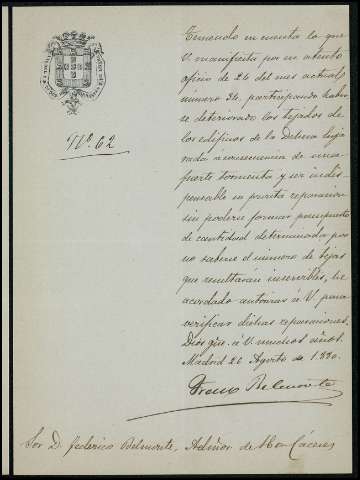 Nº. 62
Teniendo en cuenta lo que
V. manifiesta por su atento
oficio de 24 del mes actual,
número 34, participando haber
se deteriorado los tejados de
los edificios de la Dehesa
a consecuencia de una
fuerte tormenta y ser indis-
pensable su pronta reparacion
sin poderse formar presupuesto
de cantidad determinada por
no saberse el número de tejas
que resultarán inservibles, he
acordado autorizar á V. para
verificar dichas reparaciones.
Dios gue. á V. muchos años.
Madrid 26 Agosto de 1880.
Belmonte
Sor. D. Federico Belmonte, Admor de Cáceres